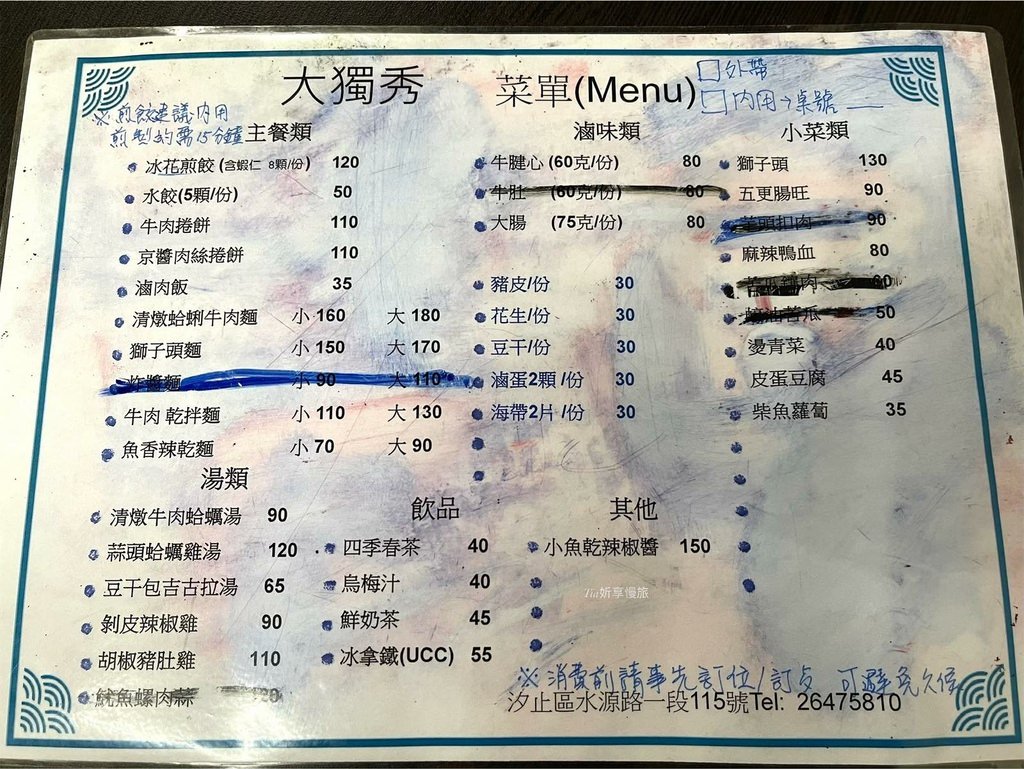 大獨秀 菜單(Menu)
□外帶
□內用→桌號
※煎餃建議內用
煎製約需15分鐘
主餐類
冰花煎餃 (含蝦仁 8顆/份) 120
水餃(5顆/份) 50
牛肉捲餅 110
京醬肉絲捲餅 110
滷肉飯 35
清燉蛤蜊牛肉麵 小 160 大 180
獅子頭麵 小 150 大 170
炸醬麵 小 90 大 110
牛肉 乾拌麵 小 110 大 130
魚香辣乾麵 小 70 大 90
湯類
清燉牛肉蛤蠣湯 90
蒜頭蛤蠣雞湯 120
豆干包吉古拉湯 65
剝皮辣椒雞 90
胡椒豬肚雞 110
魷魚螺肉蒜
滷味類
牛腱心 (60克/份) 80
牛肚 (60克/份) 80
大腸 (75克/份) 80
豬皮/份 30
花生/份 30
豆干/份 30
滷蛋2顆 /份 30
海帶2片 /份 30
飲品
四季春茶 40
烏梅汁 40
鮮奶茶 45
冰拿鐵(UCC) 55
小菜類
獅子頭 130
五更腸旺 90
芋頭扣肉 90
麻辣鴨血 80
苦瓜 肉 60
苦瓜 50
燙青菜 40
皮蛋豆腐 45
柴魚蘿蔔 35
其他
小魚乾辣椒醬 150
Tia妡享慢旅
※消費前請事先訂位/訂父 可避免久候
汐止區水源路一段115號Tel: 26475810